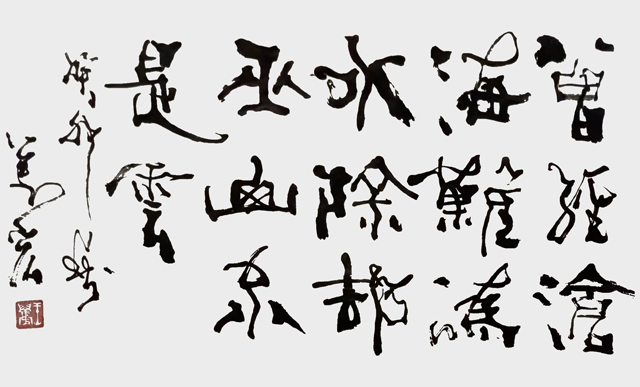 曾經滄
海難為
水除却
巫山不
是雲
癸卯